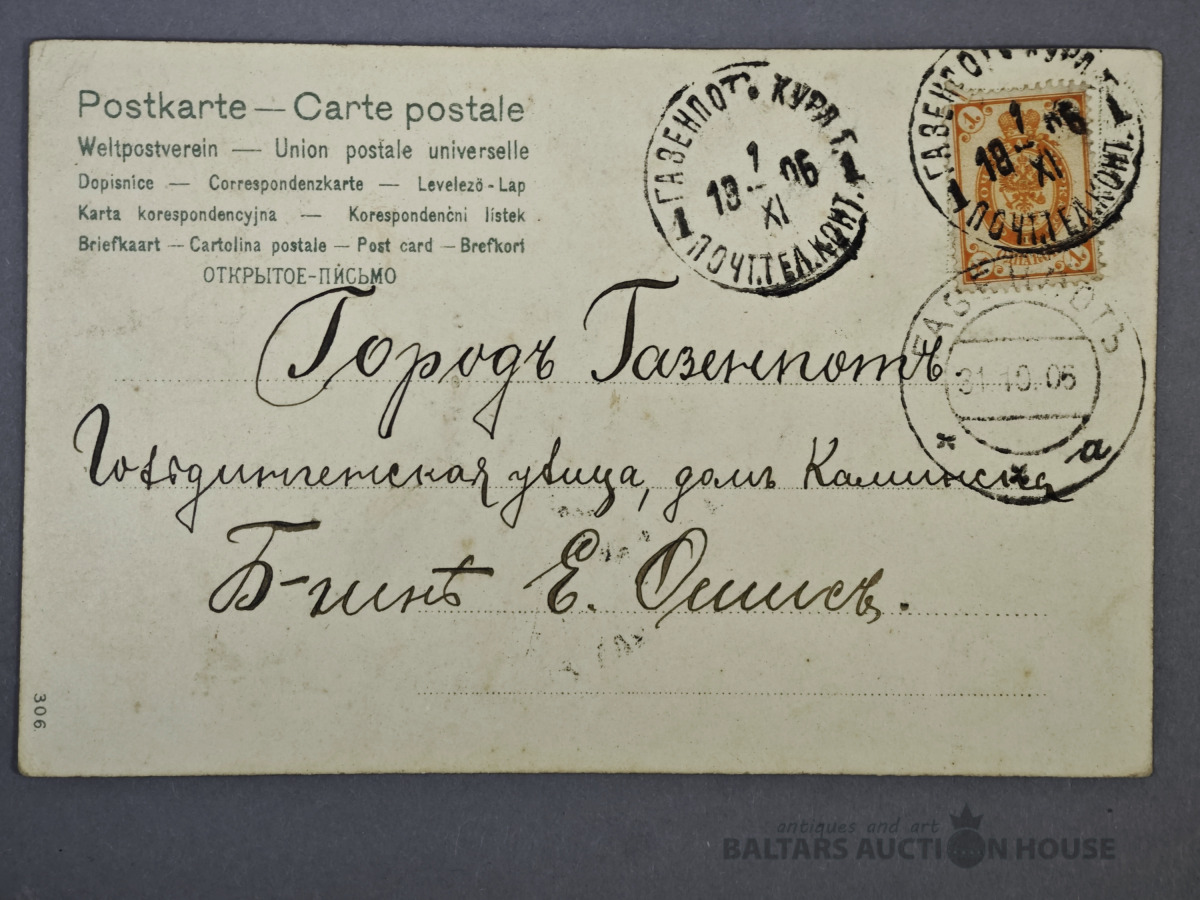 Postkarte — Carte postale
Weltpostverein — Union postale universelle
Dopisnice — Correspondenzkarte — Levelező-Lap
Karta korespondencyjna — Korespondenčni lístek
Briefkaart — Cartolina postale — Post card — Brefkort
ОТКРЫТОЕ-ПИСЬМО
ГАЗЕНПОТЪ КУРЛ. Г.
1 1
18 1/XI 06
ПОЧТ.ТЕЛ.КОНТ.
ГАЗЕНПОТЪ КУРЛ. Г.
1 1
18 1/XI 06
ПОЧТ.ТЕЛ.КОНТ.
31 10.06
а
Городъ Газенпотъ
улица, домъ
Б-шнѣ Е.
306.
antiques and art
BALTARS AUCTION HOUSE